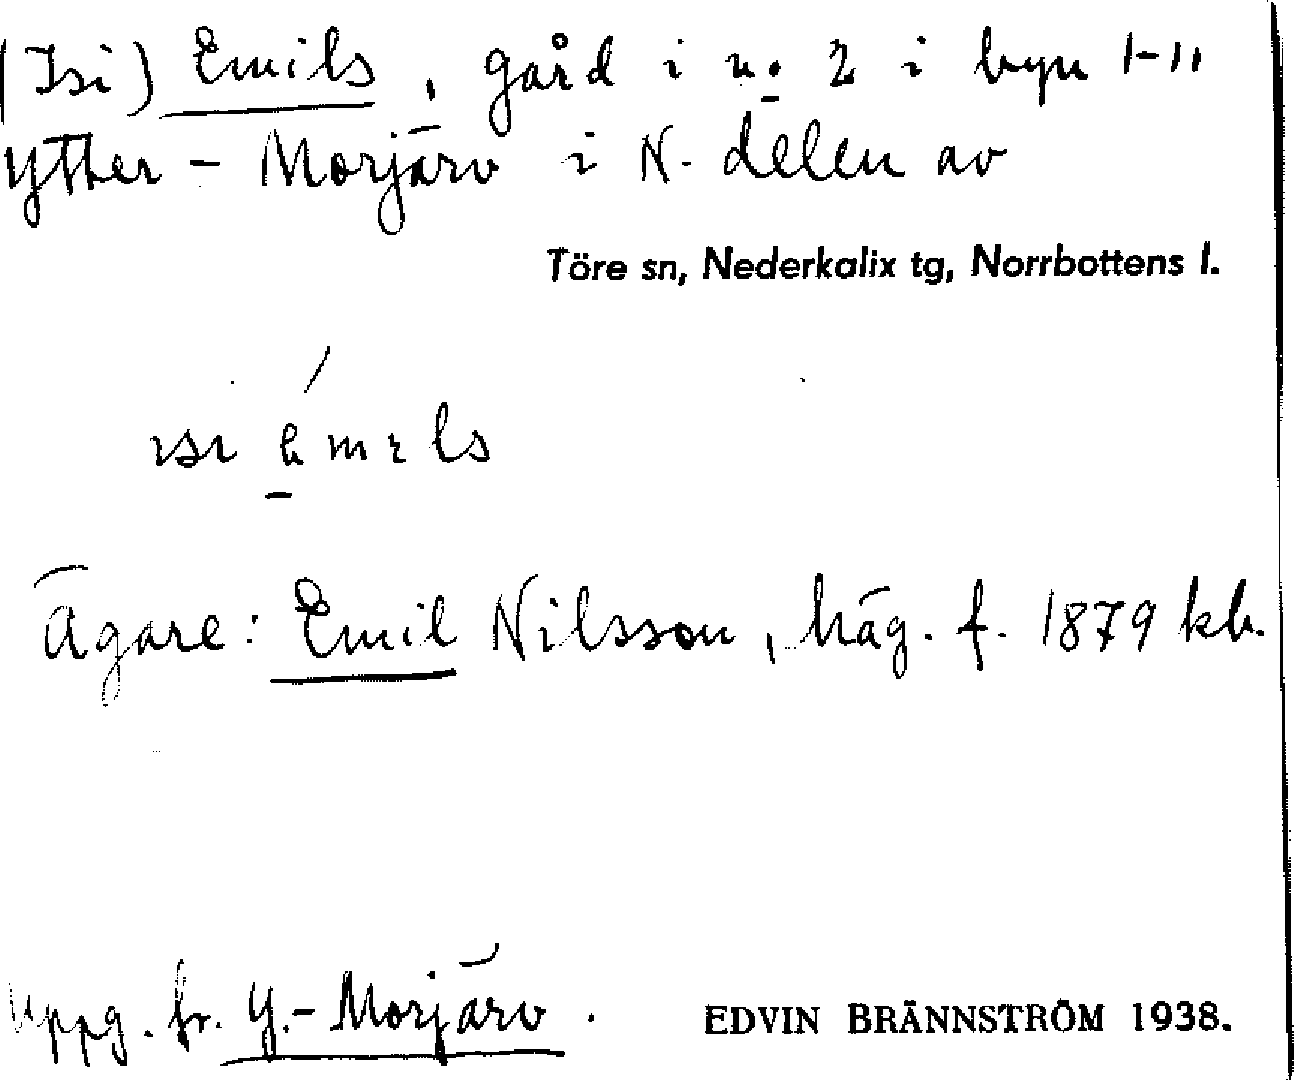 (Isi) Emils, gård i n:o 2 i byn 1-11
Ytter-Morjärv i N. delen av
Töre sn, Nederkalix tg, Norrbottens l.
ɪsɪ émɪls
Ägare: Emil Nilsson, häg. f. 1879 kb.
Uppg. fr. Y.-Morjärv.
EDVIN BRÄNNSTRÖM 1938.